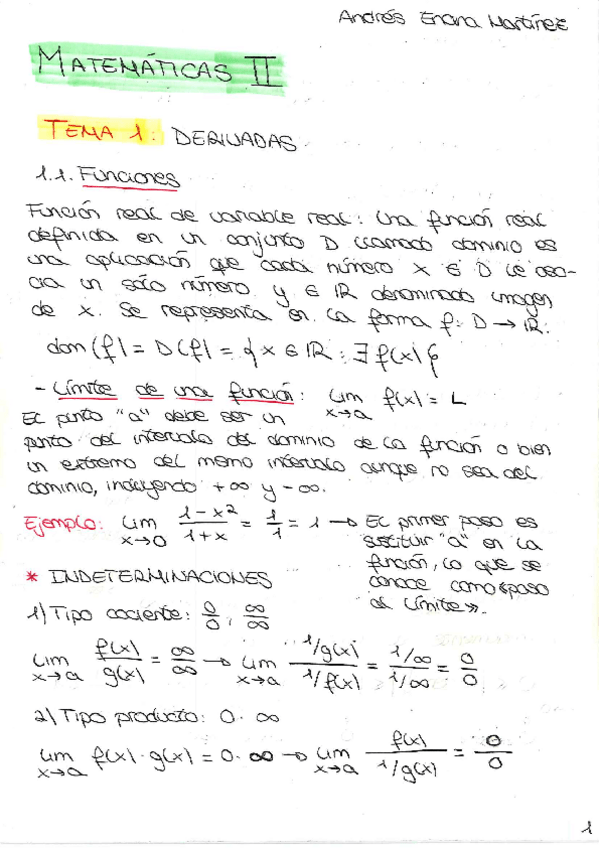 Andrés Enana Martínez
MATEMÁTICAS II
TEMA 1: DERIVADAS
1.1. Funciones
Función real de variable real: una función real
definida en un conjunto D llamado dominio es
una aplicación que cada número x ∈ D le aso-
cia un sólo número y ∈ IR denominado imagen
de x. Se representa en la forma f: D → IR.
dom (f) = D(f) = { x ∈ IR : ∃ f(x) }
- Límite de una función: lim x→a f(x) = L
El punto "a" debe ser un
punto del intervalo del dominio de la función o bien
un extremo del mismo intervalo aunque no sea del
dominio, incluyendo +∞ y -∞.
Ejemplo: lim x→0 (1-x²)/(1+x) = 1/1 = 1 → El primer paso es
sustituir "a" en la
función, lo que se
conoce como «paso
al límite».
* INDETERMINACIONES
1) Tipo cociente: 0/0, ∞/∞
lim x→a f(x)/g(x) = ∞/∞ → lim x→a (1/g(x))/(1/f(x)) = (1/∞)/(1/∞) = 0/0
2) Tipo producto: 0·∞
lim x→a f(x)·g(x) = 0·∞ → lim x→a f(x)/(1/g(x)) = 0/0
1